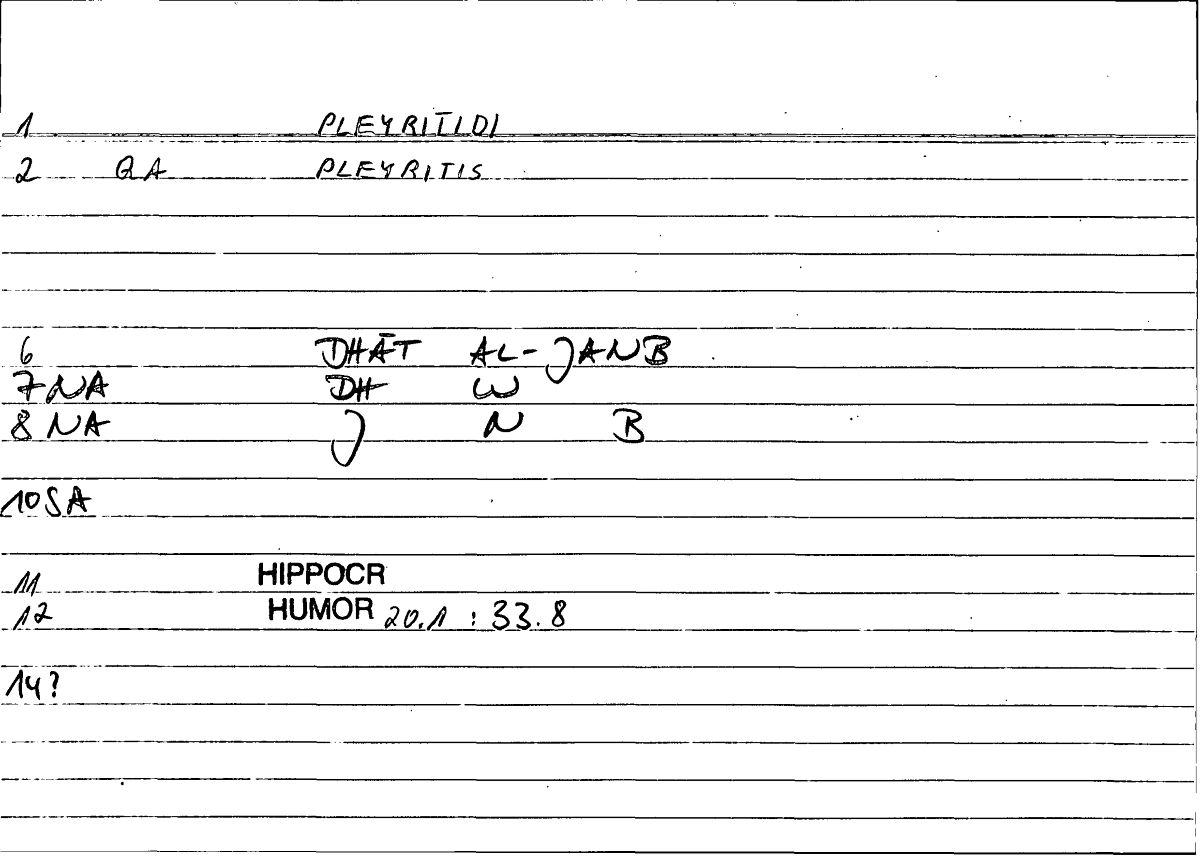 1 PLEYRITIDI
2 QA PLEYRITIS
6 DHĀT AL-JANB
7 NA DH W
8 NA J N B
10 SA
11 HIPPOCR
12 HUMOR 20.1 : 33.8
14?